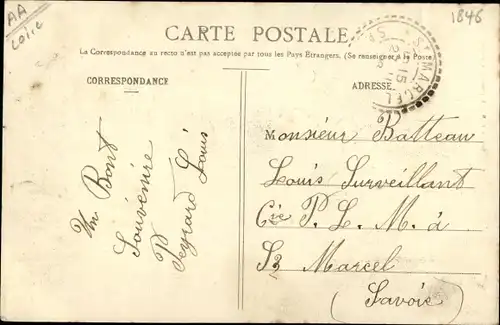 AA
Loire
1846
CARTE POSTALE
La Correspondance au recto n'est pas acceptée par tous les Pays Étrangers. (Se renseigner à la Poste)
CORRESPONDANCE
ADRESSE
Un Bont
Souvenire
Peyrard Louis
ST MARCEL
15
Monsieur Batteau
Louis Surveillant
Cie P. L. M. à
St Marcel
(Savoie)